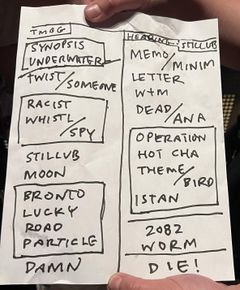 TMBG
SYNOPSIS
UNDERWATER
TWIST/SOMEONE
RACIST
WHISTL/SPY
STILLUB
MOON
BRONTO
LUCKY
ROAD
PARTICLE
DAMN
HEARING STILLUB
MEMO/MINIM
LETTER
W+M
DEAD/ANA
OPERATION
HOT CHA
THEME/BIRD
ISTAN
2082
WORM
DIE!